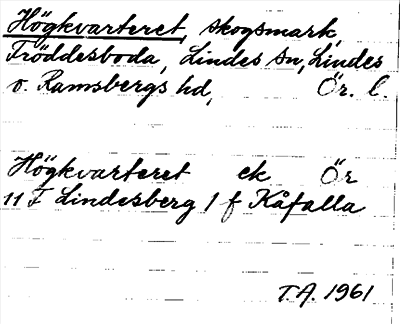 Högkvarteret, skogsmark,
Fröddesboda, Lindes sn, Lindes
o. Ramsbergs hd, Ör. l.
Högkvarteret ek Ör
11 F Lindesberg 1 f Kåfalla
T.A. 1961